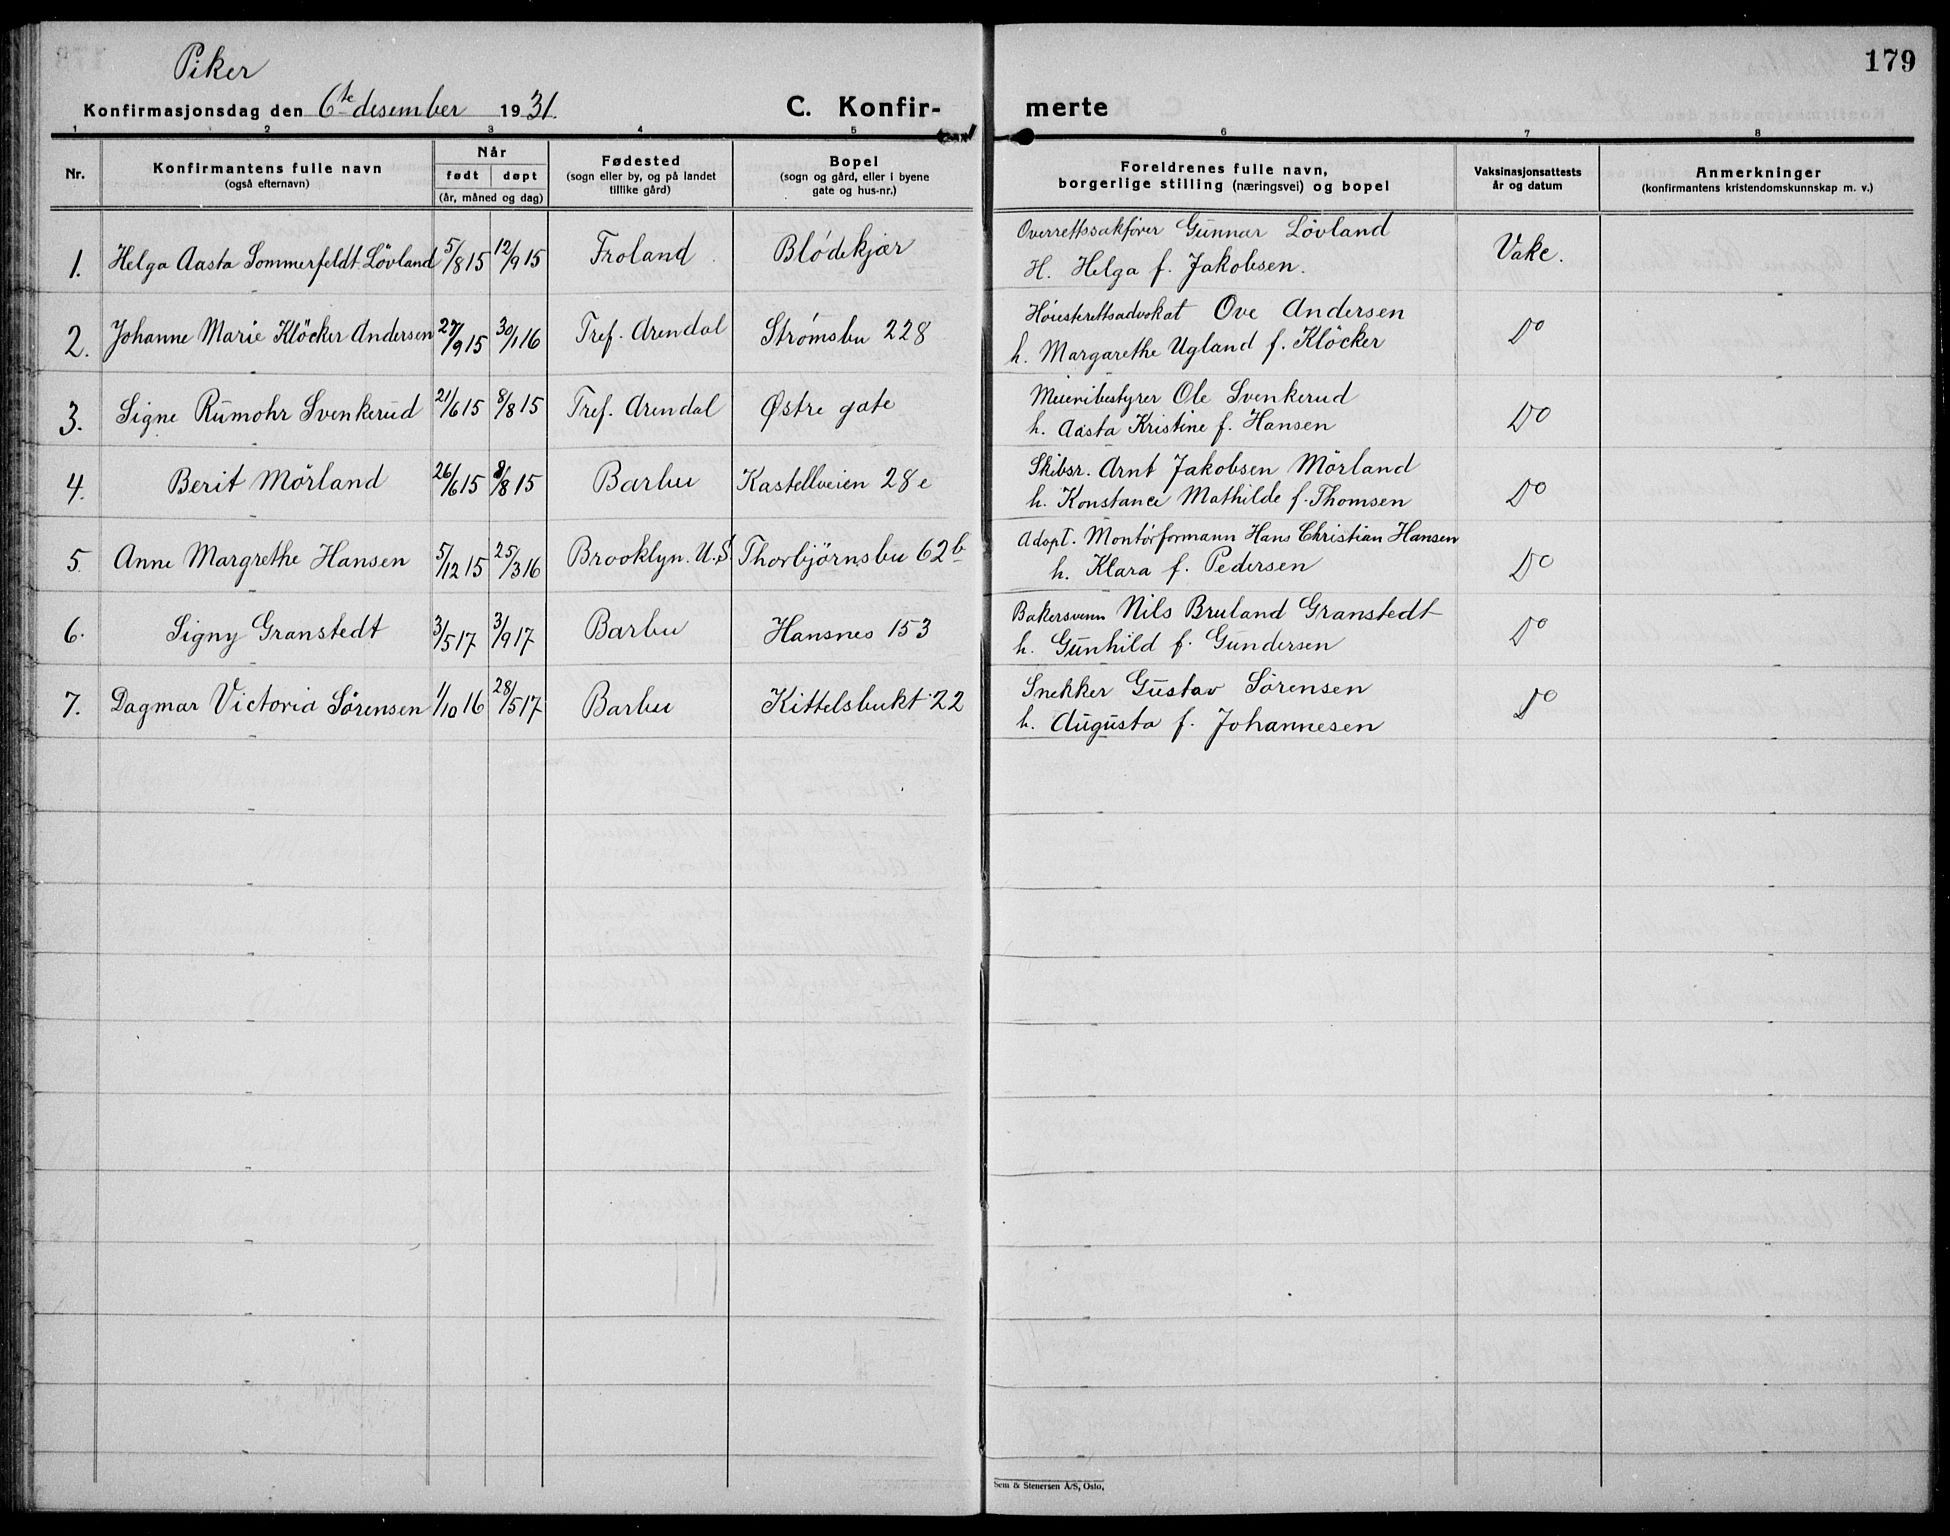 Piker
179
Konfirmasjonsdag den 6te desember 1931.
C. Konfir-merte
1 2 3 4 5 6 7 8
Nr.
Konfirmantens fulle navn
(også efternavn)
Når
født døpt
(år, måned og dag)
Fødested
(sogn eller by, og på landet
tillike gård)
Bopel
(sogn og gård, eller i byene
gate og hus-nr.)
Foreldrenes fulle navn,
borgerlige stilling (næringsvei) og bopel
Vaksinasjonsattests
år og datum
Anmerkninger
(konfirmantens kristendomskunnskap m. v.)
1. Helga Aasta Sommerfeldt Lövland 5/8 15 12/9 15 Froland Blødekjær Overrettssakfører Gunnar Lövland Vake.
H. Helga f. Jakobsen.
2. Johanne Marie Klöcker Andersen 27/9 15 30/1 16 Tref. Arendal Strømsbu 228 Høiesterettsadvokat Ove Andersen Do
h. Margarethe Ugland f. Klöcker
3. Signe Rumohr Svenkerud 21/6 15 8/8 15 Tref. Arendal Østre gate Meieribestyrer Ole Svenkerud Do
h. Aasta Kristine f. Hansen
4. Berit Mörland 26/6 15 8/8 15 Barbu Kastellveien 28 c Skibsr. Arnt Jakobsen Mörland Do
h. Konstance Mathilde f. Thomsen
5. Anne Margrethe Hansen 5/12 15 25/3 16 Brooklyn. U.S Thorbjørnsbu 62 b Adopt. Montørformann Hans Christian Hansen Do
h. Klara f. Pedersen
6. Signy Granstedt 3/5 17 3/9 17 Barbu Hansnes 153 Bakersvenn Nils Bruland Granstedt Do
h. Gunhild f. Gundersen
7. Dagmar Victoria Sörensen 1/10 16 28/5 17 Barbu Kittelsbukt 22 Snekker Gustav Sörensen Do
h. Augusta f. Johannesen
Sem & Stenersen A/S, Oslo.